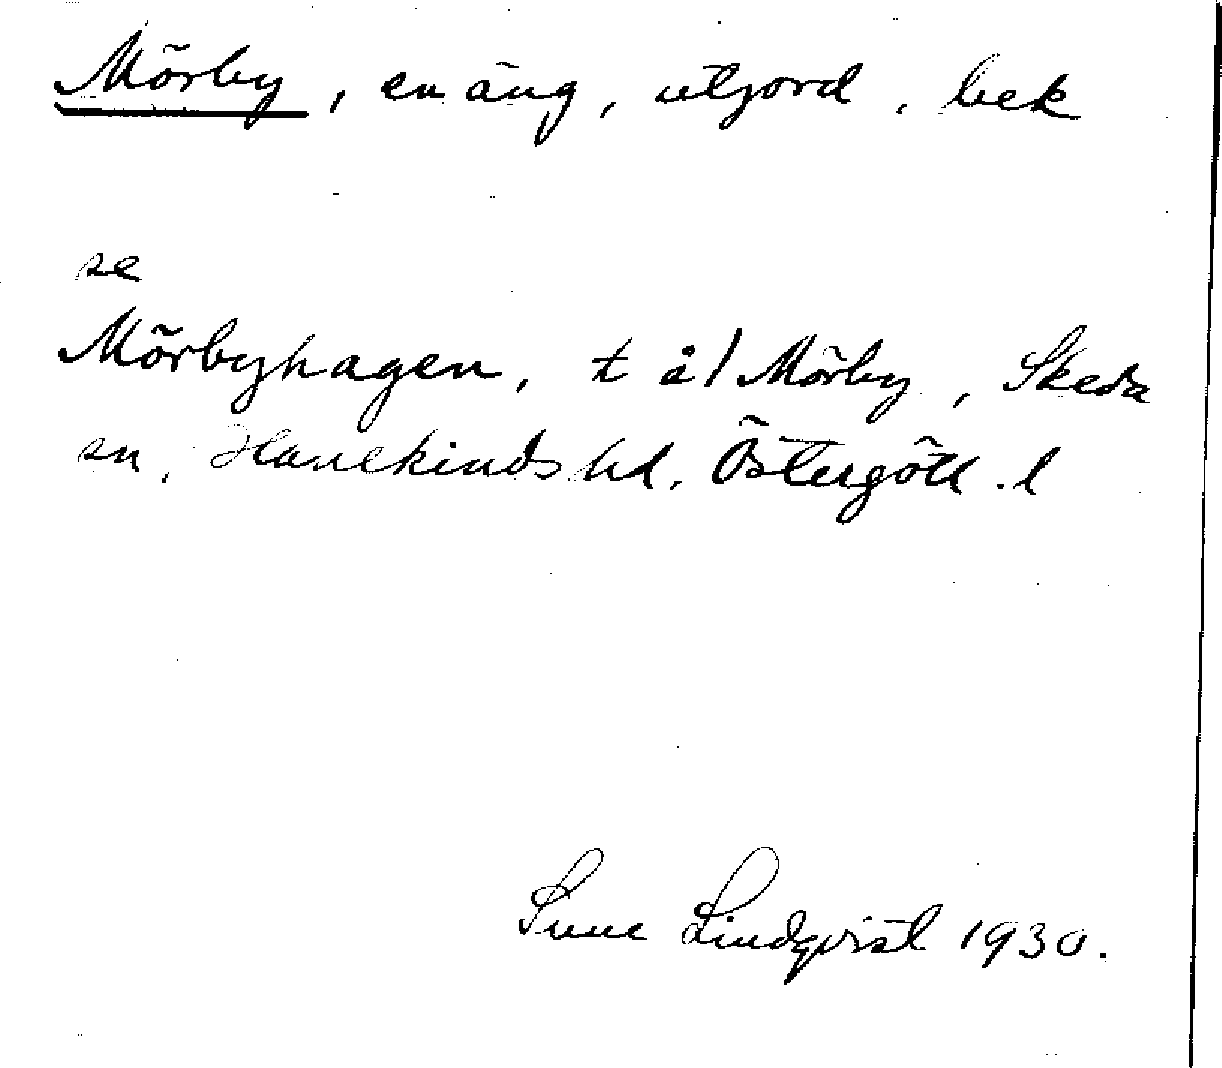 Mörby, en äng, utjord, bek
se
Mörbyhagen, t å/ Mörby, Skeda
sn, Hanekinds hd, Östergötl. l
Sune Lindqvist 1930.